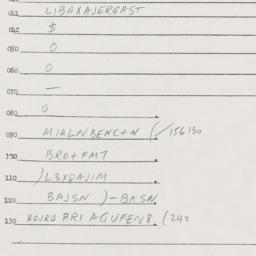 041 LIBAXAJERGAST
042 $
050 0
060 0
070 —
080 0
090 MIRLNBENC+N (/156130
100 BRO+FMT
110 )L3YQAJIM
120 BAJSN )-BASN
130 BRI AGUFENS. (242